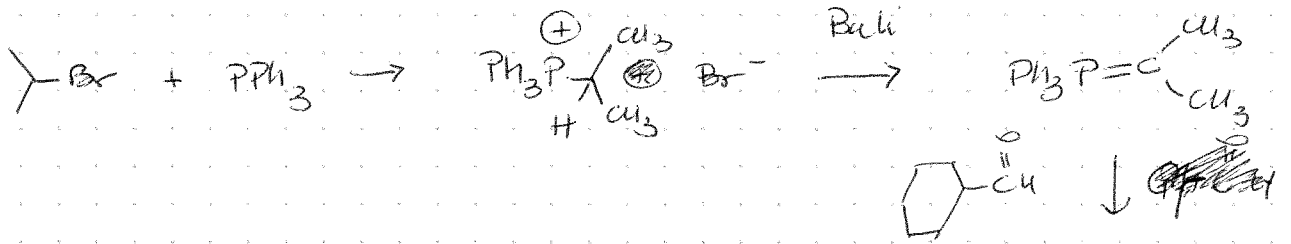 Br + PPh3 → Ph3P ⊕ CH3 H CH3 Br⁻ BuLi → Ph3P=C CH3 CH3
O CH ↓